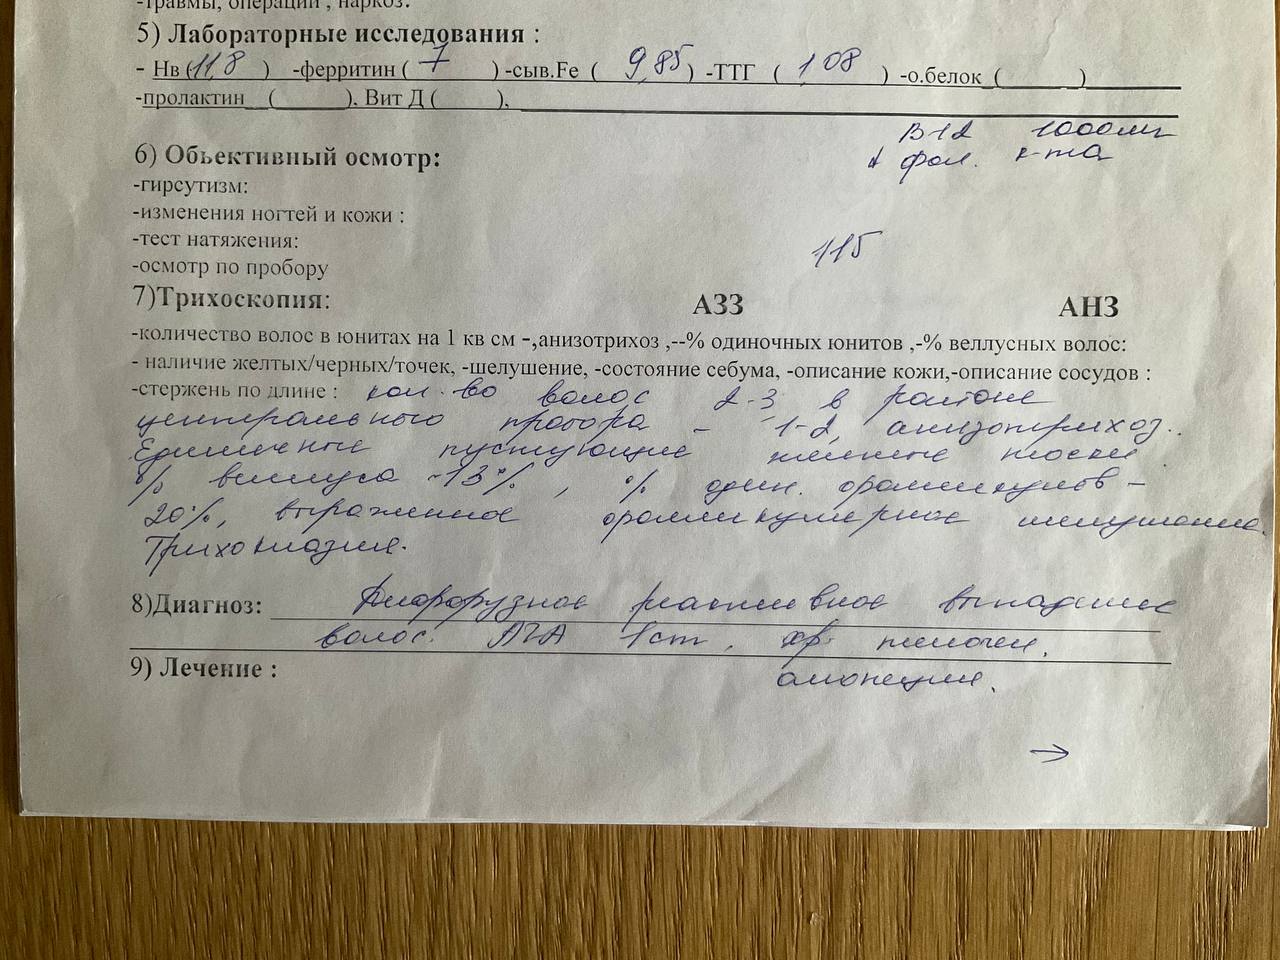 -травмы, операции , наркоз:
5) Лабораторные исследования :
- Нв (11,8 ) -ферритин ( 7 ) -сыв.Fe ( 9,85 ) -ТТГ ( 1,08 ) -о.белок (______)
-пролактин__(______), Вит Д (_____),
В-12 1000мг
+ фол. к-та
6) Обьективный осмотр:
-гирсутизм:
-изменения ногтей и кожи :
-тест натяжения:
115
-осмотр по пробору
7)Трихоскопия: АЗЗ АНЗ
-количество волос в юнитах на 1 кв см -,анизотрихоз ,--% одиночных юнитов ,-% веллусных волос:
- наличие желтых/черных/точек, -шелушение, -состояние себума, -описание кожи,-описание сосудов :
-стержень по длине : кол-во волос 2-3 в районе
центрального пробора - 1-2, анизотрихоз..
Единичные пустующие желтые точки
% веллуса -13%, % один. фолликулов -
20%, выраженное фолликулярное шелушение.
Трихоклазия.
8)Диагноз: Диффузное реактивное выпадение
волос. АГА 1ст, хр.
9) Лечение : алопеция.
→